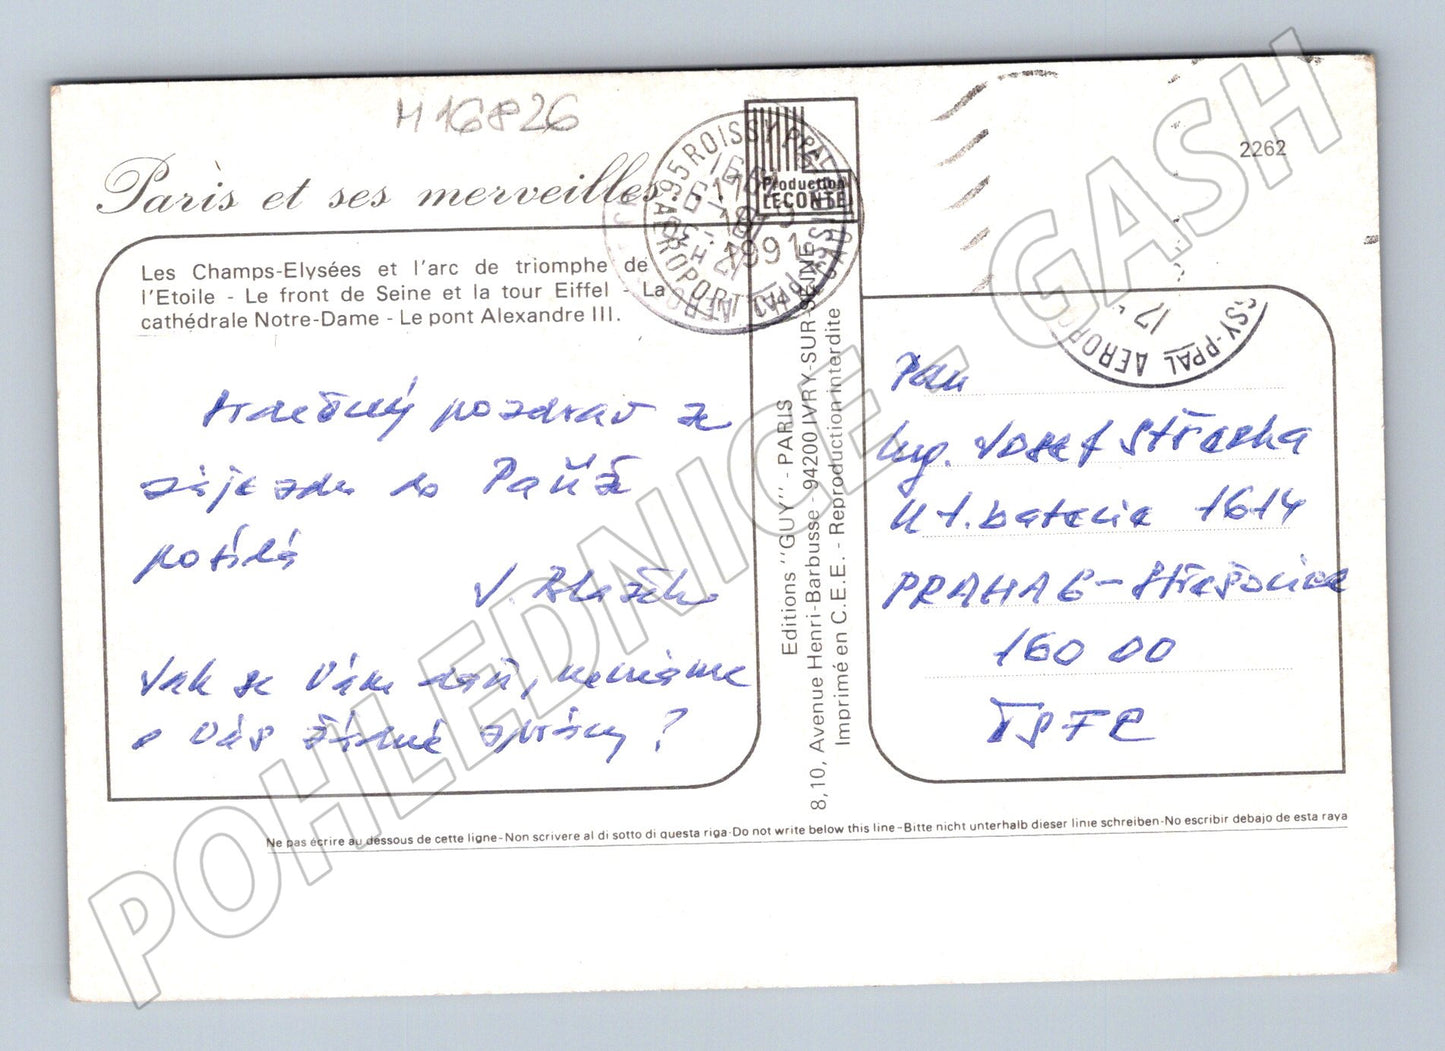 M 16826
Paris et ses merveilles
2262
Les Champs-Elysées et l'arc de triomphe de
l'Etoile - Le front de Seine et la tour Eiffel - La
cathédrale Notre-Dame - Le pont Alexandre III.
95 ROISSY PPAL
AEROPORT
1991
Production
LECONTE
SSY-PPAL AEROPO
17
srdečný pozdrav ze
zájezdu do Paříže
posílá
V. Blažek
Jak se Vám daří, nemáme
o Vás žádné zprávy?
Editions "GUY" - PARIS
8,10, Avenue Henri-Barbusse - 94200 IVRY-SUR-SEINE
Imprimé en C.E.E. - Reproduction interdite
Pan
Ing. Josef
U 1. baterie 1614
PRAHA 6 - Střešovice
160 00
Ne pas écrire au dessous de cette ligne-Non scrivere al di sotto di questa riga-Do not write below this line-Bitte nicht unterhalb dieser linie schreiben-No escribir debajo de esta raya
POHLEDNICE - GASH